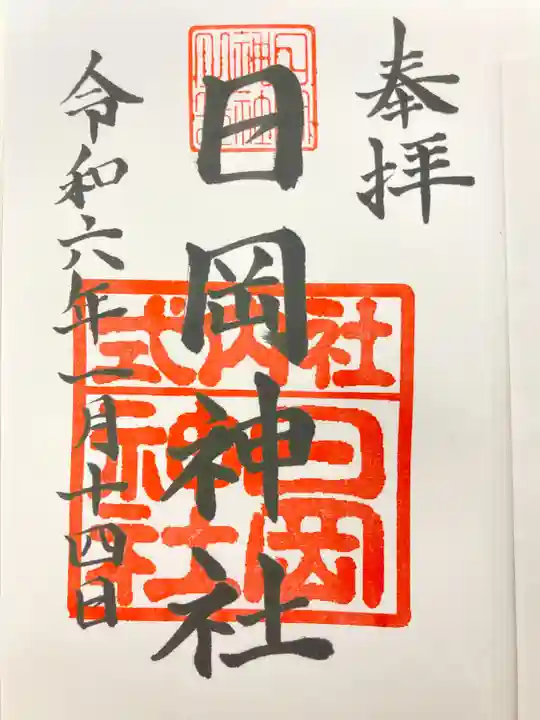 奉拝
日岡神社
令和六年一月十四日
式内社
日岡
神社